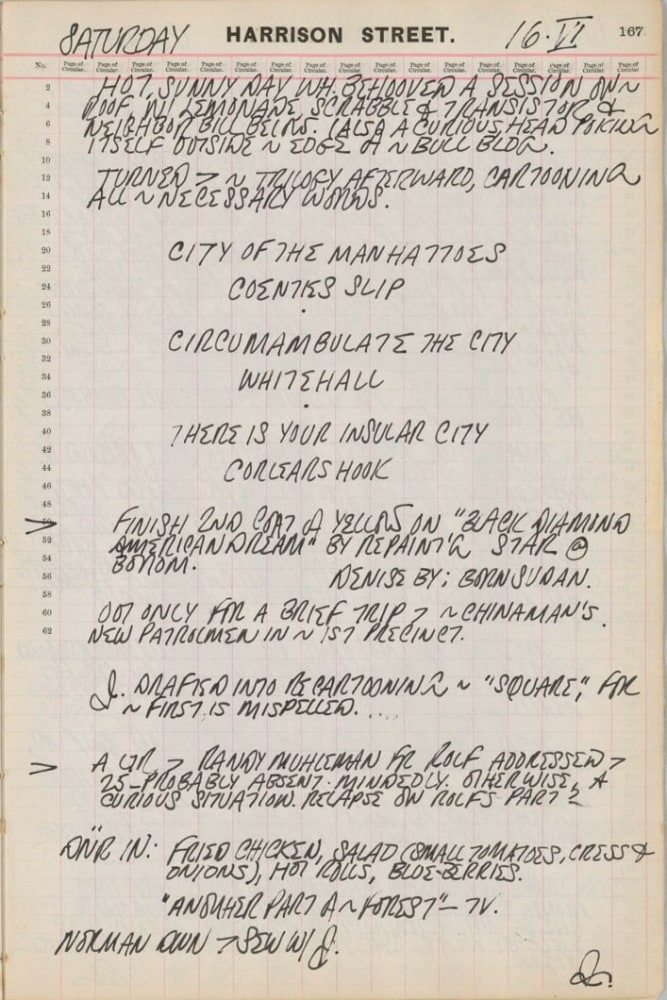 SATURDAY HARRISON STREET. 16·VI 167
No. Page of Circular. Page of Circular. Page of Circular. Page of Circular. Page of Circular. Page of Circular. Page of Circular. Page of Circular. Page of Circular. Page of Circular. Page of Circular. Page of Circular. Page of Circular. Page of Circular. Page of Circular. Page of Circular.
2 HOT, SUNNY DAY WH. BEHOOVED A SESSION ON ~
4 ROOF W/ LEMONADE, SCRABBLE & TRANSISTOR &
6 NEIGHBOR BILL BELOW. (ALSO A CURIOUS HEAD POKING
8 ITSELF OUTSIDE ~ EDGE OF ~ BULL BLDG.
10
12 TURNED > ~ TRILOGY AFTERWARD, CARTOONING
14 ALL ~ NECESSARY WORDS.
16
18
20 CITY OF THE MANHATTOES
22
24 COENTIES SLIP
26
28
30 CIRCUMAMBULATE THE CITY
32
34 WHITEHALL
36
38
40 THERE IS YOUR INSULAR CITY
42
44 CORLEARS HOOK
46
48
> FINISH 2ND COAT OF YELLOW ON "BLACK DIAMOND
52 AMERICAN DREAM" BY REPAINT'G STAR @
54 BOTTOM.
56 DENISE BY; BORN SUDAN.
58
60 OUT ONLY FOR A BRIEF TRIP > ~ CHINAMAN'S.
62 NEW PATROLMEN IN ~ 1ST PRECINCT.
J. DRAFTED INTO RECARTOONING ~ "SQUARE," FOR
~ FIRST IS MISPELLED....
> A LTR > RANDY MUHLEMAN FR ROLF ADDRESSED >
25 – PROBABLY ABSENT-MINDEDLY. OTHERWISE, A
CURIOUS SITUATION. RELAPSE ON ROLF'S PART?
DNR IN: FRIED CHICKEN, SALAD (SMALL TOMATOES, CRESS &
ONIONS), HOT ROLLS, BLUE-BERRIES.
"ANOTHER PART OF ~ FOREST" – TV.
NORMAN DWN > SEW W/ J.